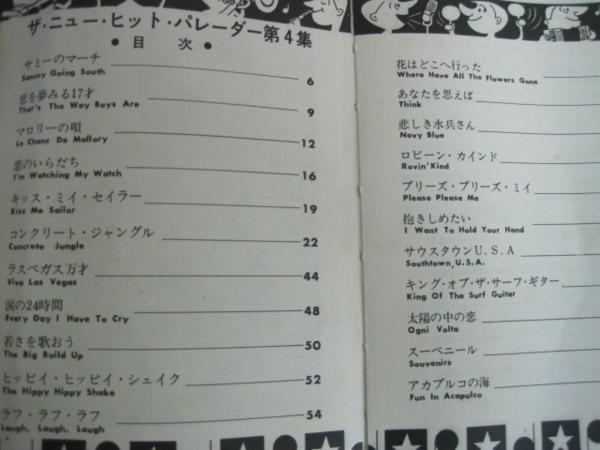 ザ・ニュー・ヒット・パレーダー第4集
●目次●
サミーのマーチ
Sammy Going South
6
恋を夢みる17才
That's The Way Boys Are
9
マロリーの唄
Le Chant De Mallory
12
恋のいらだち
I'm Watching My Watch
16
キッス・ミイ・セイラー
Kiss Me Sailor
19
コンクリート・ジャングル
Concrete Jungle
22
ラスベガス万才
Viva Las Vegas
44
涙の24時間
Every Day I Have To Cry
48
若さを歌おう
The Big Build Up
50
ヒッピイ・ヒッピイ・シェイク
The Hippy Hippy Shake
52
ラフ・ラフ・ラフ
Laugh, Laugh, Laugh
54
花はどこへ行った
Where Have All The Flowers Gone
あなたを思えば
Think
悲しき水兵さん
Navy Blue
ロビーン・カインド
Rovin' Kind
プリーズ・プリーズ・ミイ
Please Please Me
抱きしめたい
I Want To Hold Your Hand
サウスタウンU.S.A
Southtown, U.S.A.
キング・オブ・ザ・サーフ・ギター
King Of The Surf Guitar
太陽の中の恋
Ogni Volta
スーベニール
Souvenirs
アカプルコの海
Fun In Acapulco